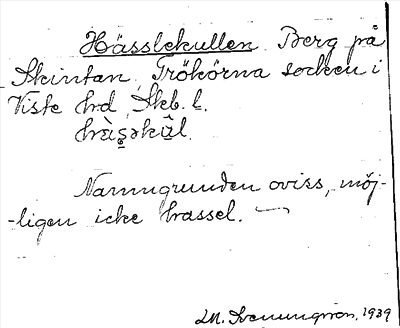 Hässlekullen. Berg på
Skintan, Trökörna socken i
Viste hrd, Skb. l.
hàs̥əkûl.
Namngrunden oviss, möj-
-ligen icke hassel.
1939